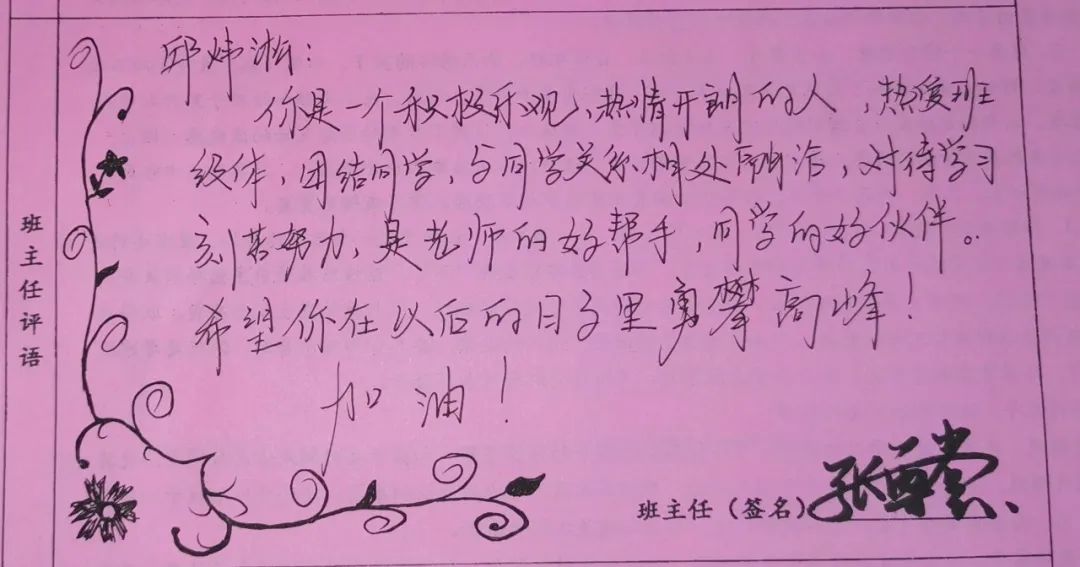 班主任评语
邱炜淞：
你是一个积极乐观，热情开朗的人，热爱班
级体，团结同学，与同学关系相处融洽，对待学习
刻苦努力，是老师的好帮手，同学的好伙伴。
希望你在以后的日子里勇攀高峰！
加油！
班主任（签名）张